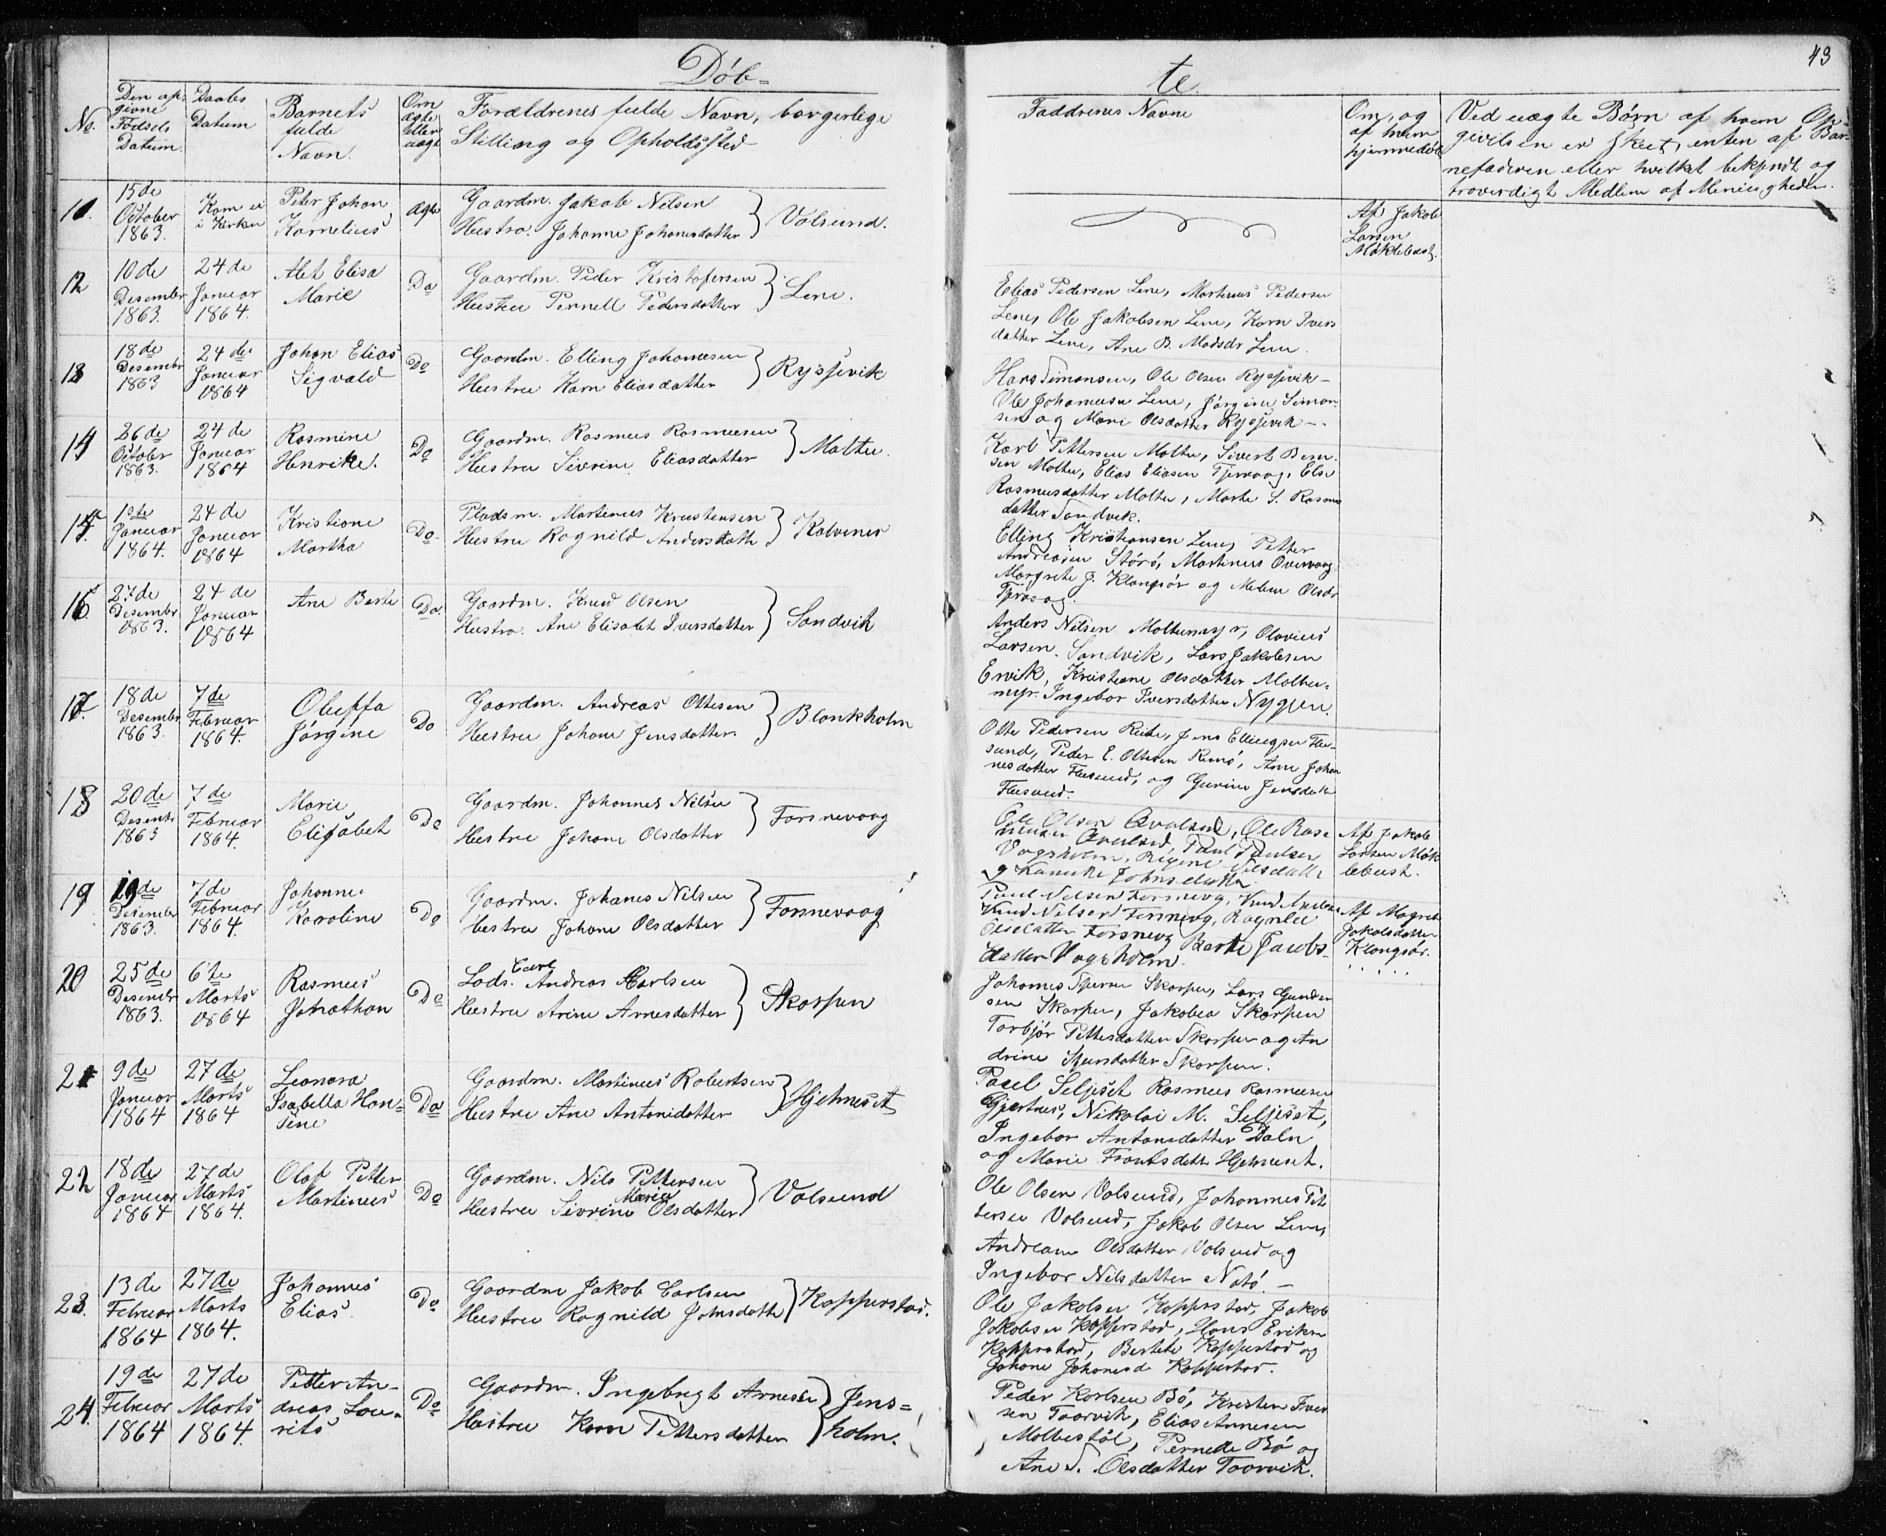 Døb-
te
43
No.
Den op-
givne
Fødsels
Datum.
Daabs
Datum
Barnets
fulde
Navn.
Om
ægte
eller
uægt
Forældrenes fulde Navn, borgerlige
Stilling og Opholdssted
Faddrenes Navne
Om, og
af hvem
hjemmedøbt
Ved uægte Børn af hvem Op-
givelsen er skeet, enten af Bar-
nefaderen eller hvilket bekjendt og
troværdigt Medlem af Menigheden.
11.
15de
October
1863.
Kom ei
i Kirken
Peter Johan
Kornelius
Ægte
Gaardm. Jakob Nilsen
Hustro. Johanne Johanesdatter
Volsund.
Af Jakob
Larsen
Møklebust.
12
10de
Desember
1863.
24de
Januar
1864.
Alet Elisa
Marie
Do
Gaardm. Peder Kristofersen
Hustru Pernell Pedersdatter
Lene.
Elias Pedersen Lene, Martinus Pedersen
Lene, Ole Jakobsen Lene, Karn Ivers
datter Lene, Ane B. Madsdr Lene.
13
18de
Desembr
1863
24de
Januar
1864
Johan Elias
Sigvald
Do
Gaardm. Elling Johanesen
Hustru Karn Eliasdatter
Rysjevik
Hans Simonsen, Ole Olsen Rysjevik-
Ole Johannesen Lene, Jørgine Simon-
sen og Marie Olsdatter Rysjevik-.
14
26de
October
1863.
24de
Januar
1864
Rasmine
Henrike.
Do
Gaardm. Rasmus Rasmusen
Hustru Sivrine Eliasdatter
Moltu.
Karl Pettersen Moltu, Sivert
sen Moltu, Elias Eliasen Tjervaag, Else
Rasmusdatter Moltu, Marte S. Rasmus
datter Sandvik.
15
1ste
Januar
1864.
24de
Januar
1864
Kristiane
Martha
Do
Pladsm. Martinus Kristensen
Hustru Ragnild Andersdatte
Kalvenes
Elling Kristiansen Lene, Petter
Andreasen Størø, Martinus Overvaag
Margrete J. Klongsør og Malene Olsdr
Tjrvaag.
16
27de
Desembr
1863.
24de
Januar
1864
Ane Berte
Do
Gaardm. Knud Olsen
Hustro. Ane Elisabet Iversdatter
Sandvik
Anders Nilsen Moltumyr, Olavius
Larsen. Sandvik, Lars Jakobsen
Ervik, Kristiane Olsdatter Moltu-
myr. Ingebor Iversdatter Nygjen.
17
18de
Desembr
1863.
7de
Februar
1864.
Oluffa
Jørgine
Do
Gaardm. Andreas Ottesen
Hustru Johane Jensdatter
Blankholm
Otte Pedersen Runde, Jens Ellingsen Flu-
sund, Peder E. Ottesen Remø, Ane Johan
nesdatter Flusund, og Gurine Jensdatr
Flusund.
18
20de
Desembr
1863
7de
Februar
1864.
Marie
Elisabet
Do
Gaardm. Johannes Nilsen
Hustru Johane Olsdatter
Forsnevaag
Ole Olsen Qvalsud, Ole Ras-
musen Qvalsud, Paul Paulsen
Vogsholm, Regine Nilsdatte
og Kanuke Johnsdatter
Af Jakob
Larsen Møk
lebust.
19
19de
Desember
1863.
7de
Februar
1864.
Johanne
Karoline
Do
Gaardm. Johanes Nilsen
Hestru Johane Olsdatter
Forsnevaag
Paul Nilsen Forsnevg, Knud
Knud Nilsen Forsnevg, Ragnile
Olsdatter Forsnevg Barte Jacobs-
datter Vogsholm.
Af Magrete
Jakobsdatter
Klongsør.
20
25de
Desembr
1863.
6te
Marts
1864
Rasmus
Jonathan
Do
Carl
Lods. Andreas Carlsen
Hustru Arine Arnesdatter
Skorpen
Johannes Skorpen, Lars Gunder
sen Skorpen, Jakobea Skorpen
Torbjør Pettersdatter Skorpen og An
drine Skorpen.
21
9de
Januar
1864
27de
Marts
1864
Leonara
Isabella Han-
sine
Do
Gaardm. Martinus Robertsen
Hustru Ane Antonidatter
Hjelmeset
Paul Seljeset Rasmus Rasmusen
Gjertnes, Nikolai M. Seljeset,
Ingebor Antonsdatter Daln
og Marie Frantsdattr Hjelmeset.
22
18de
Januar
1864
27de
Marts
1864.
Olaf Petter
Martinus
Do
Gaardm. Nils Pettersen
Maria
Hustru Sivrine Olsdatter
Volsund
Ole Olsen Volsund, Johannes Pet
tersen Volsund, Jakob Olsen Lene,
Andreane Olsdatter Volsund og
Ingebor Nilsdatter Notø-
23.
13de
Februar
1864
27de
Marts
1864.
Johannes
Elias.
Do
Gaardm Jakob Carlsen
Hustru Ragnild Johnsdatte
Kopperstad.
Ole Jakobsen Kopperstad, Jakob
Jakobsen Kopperstad, Hans Eriksen
Kopperstad, Berthe Kopperstad og
Johane Johanesd Kopperstad.
24.
19de
Februar
1864
27de
Marts
1864.
Petter An-
dreas Lou-
rits
Do
Gaardm. Ingebrigt Arnesen
Hustru Karn Pettersdatter
Jens-
holm.
Peder Karlsen Bø, Kresten Iver
sen Taarvik, Elias Annesen
Moltestøl, Pernede Bø og
Ane S. Olsdatter Taarvik.